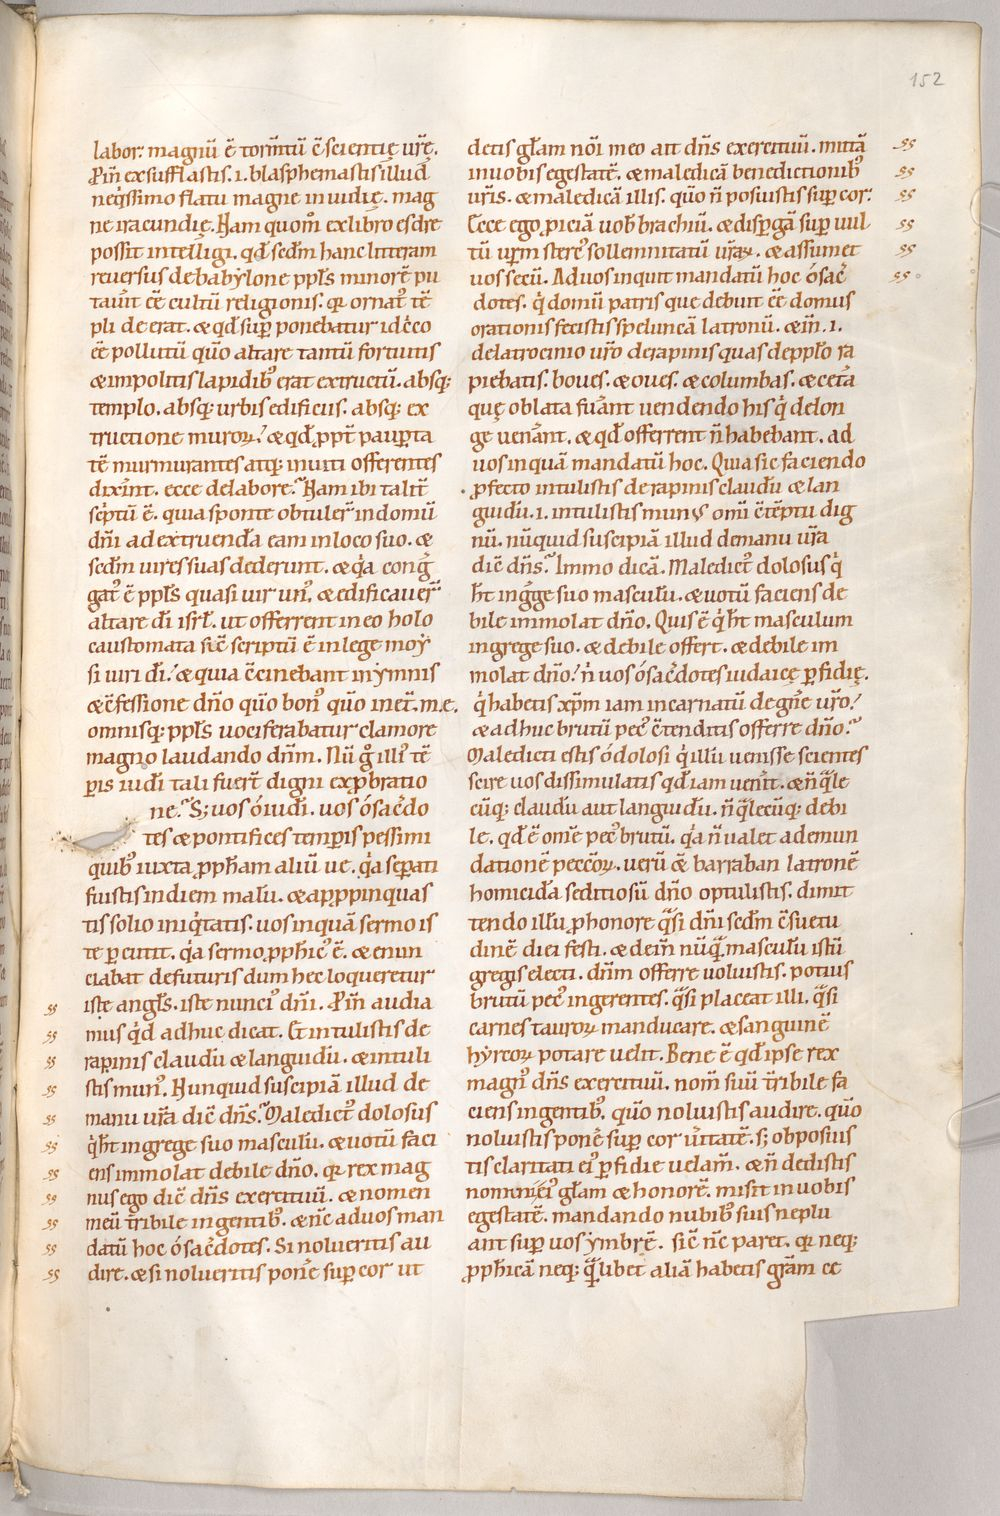 152
labor. magnū ē torm̄tū c̄scientię ur̄ę.
P̄m̄ exsufflastis. i. blasphemastis illud
neq̇ssimo flatu magne inuidię. mag
ne iracundię. Nam quom̄ ex libro esdre
possit intelligi. qđ scdm̄ hanc litteram
reuersus de babẏlone pp̄ls minorē pu
tauīt c̄e cultū religionis. qr ornat᷒ tē
pli deerat. & qđ sup̄ ponebatur idc̄co
ēe pollutū quō altare tantū fortuitis
& impolitis lapidib᷒ erat extructū. absq;
templo. absq; urbis edificiis. absq; ex
tructione muroꝝ? & qđ ꝓpt̄ paup̄ta
tē murmurantes atq; inuiti offerentes
dixer̄t. ecce de labore. Nam ibi talit̄
sc̄ptū ē. quia sponte obtuler̄ in domū
dn̄i ad extruendā eam in loco suo. &
scdm̄ uires suas dederunt. & q̇a cong̅
gat᷒ ē pp̄ls quasi uir un᷒. & edificauer̄
altare dī isrł. ut offerrent in eo holo
caustomata sic̄ scriptū ē in lege moẏ
si uiri dī? & quia c̄cinebant in ẏmnis
& c̄fessione dn̄o quō bon᷒ quō in et̄. m.e.
omnisq; pp̄ls uociferabatur clamore
magno laudando dn̄m. Nū g̊ illi᷒ tē
ꝑis iudī tali fuer̄t digni exꝓbratio
ne. S; uos ó iudī. uos ó sac̄do
tes & pontifices temꝑis pessimi
quib᷒ iuxta ꝓpħam aliū ue. q̇a sep̄ati
fuistis in diem malū. & apꝓpinquas
tis solio iniq̇tatis. uos inquā sermo is
te ꝑcutit. q̇a sermo ꝓpħic᷒ ē. & enun
ciabat de futuris dum hec loqueretur
iste angłs. iste nunci᷒ dn̄i. P̄m̄ audia
mus q̇d adhuc dicat. Et intulistis de
rapinis claudū & languidū. & intuli
stis mun᷒. Nunquid suscipiā illud de
manu ur̄a dic̄ dn̄s. Maledict᷒ dolosus
q̇ ħt in grege suo masculū. & uotū faci
ens immolat debile dn̄o. qr rex mag
nus ego dic̄ dn̄s exercituū. & nomen
meū t̄ribile in gentib᷒. & nc̄ ad uos man
datū hoc ó sac̄dotes. Si nolueritis au
dire. & si nolueritis ponē sup̄ cor ut
detis głam nōi meo ait dn̄s exercituū. mittā
in uobis egestatē. & maledicā benedictionib᷒
ur̄is. & maledicā illis. quō n̄ posuistis sup̄ cor.
Ecce ego ꝓiciā uob̄ brachiū. & disꝑgā sup̄ uul
tū ur̄m sterc᷒ sollemnitatū ur̄aꝝ. & assumet
uos secū. Ad uos inquit mandatū hoc ó sac̄
dotes. q̇ domū patris que debuit c̄e domus
orationis fecistis speluncā latronū. & in̄. i.
de latrocinio ur̄o de rapinis quas de ppło ra
piebatis. boues. & oues. & columbas. & cetā
quę oblata fuant̄ uendendo his q̇ de lon
ge uenānt. & qđ offerrent n̄ habebant. ad
uos inquā mandatū hoc. Quia sic faciendo
ꝓfecto intulistis de rapinis claudū & lan
guidū. i. intulistis mun᷒ omī c̄tēptu dig
nū. nūquid suscipiā illud de manu ur̄a
dic̄ dn̄s. Immo dicā. Maledict᷒ dolosus q̇
ħt in g̅ge suo masculū. & uotū faciens de
bile immolat dn̄o. Quis ē q̇ ħt masculum
in grege suo. & debile offert. & debile im
molat dn̄o? n̄ uos ó sac̄dotes iudaicę ꝑfidię.
q̇ habetis xp̄m iam incarnatū de gn̄e ur̄o?
& adhuc brutū pec᷒ c̄tenditis offerre dn̄o?
Maledicti estis ó dolosi q̇ illū uenisse scientes
scire uos dissimulatis qđ iam uenit̄. & n̄ q̄le
cūq; claudū aut languidū. n̄ q̄lecūq; debi
le. qđ ē om̄e pec᷒ brutū. q̇a n̄ ualet ad emun
dationē peccōꝝ. uerū & barraban latronē
homicidā seditiosū dn̄o optulistis. dimit
tendo illū ꝓ honore q̄si dn̄i scdm̄ c̄suetu
dinē diei festi. & dein̄ nūq̄ masculū istū
gregis electi. dn̄m offerre uoluistis. potius
brutū pec᷒ ingerentes. q̄si placeat illi. q̄si
carnes tauroꝝ manducare. & sanguinē
hẏrcoꝝ potare uelit. Bene ē qđ ipse rex
magn᷒ dn̄s exercituū. nom̄ suū t̄ribile fa
ciens in gentib᷒. quō noluistis audire. quō
noluistis ponē sup̄ cor u̇itatē. s; obposuis
tis claritati ei᷒ ꝑfidie uelam̄. & n̄ dedistis
nomini ei᷒ głam & honorē. misit in uobis
egestatē. mandando nubib᷒ suis ne plu
ant sup̄ uos ẏmbrē. sic̄ nc̄ paret. qr neq;
ꝓpħicā neq; q̄libet aliā habetis gr̄am ce